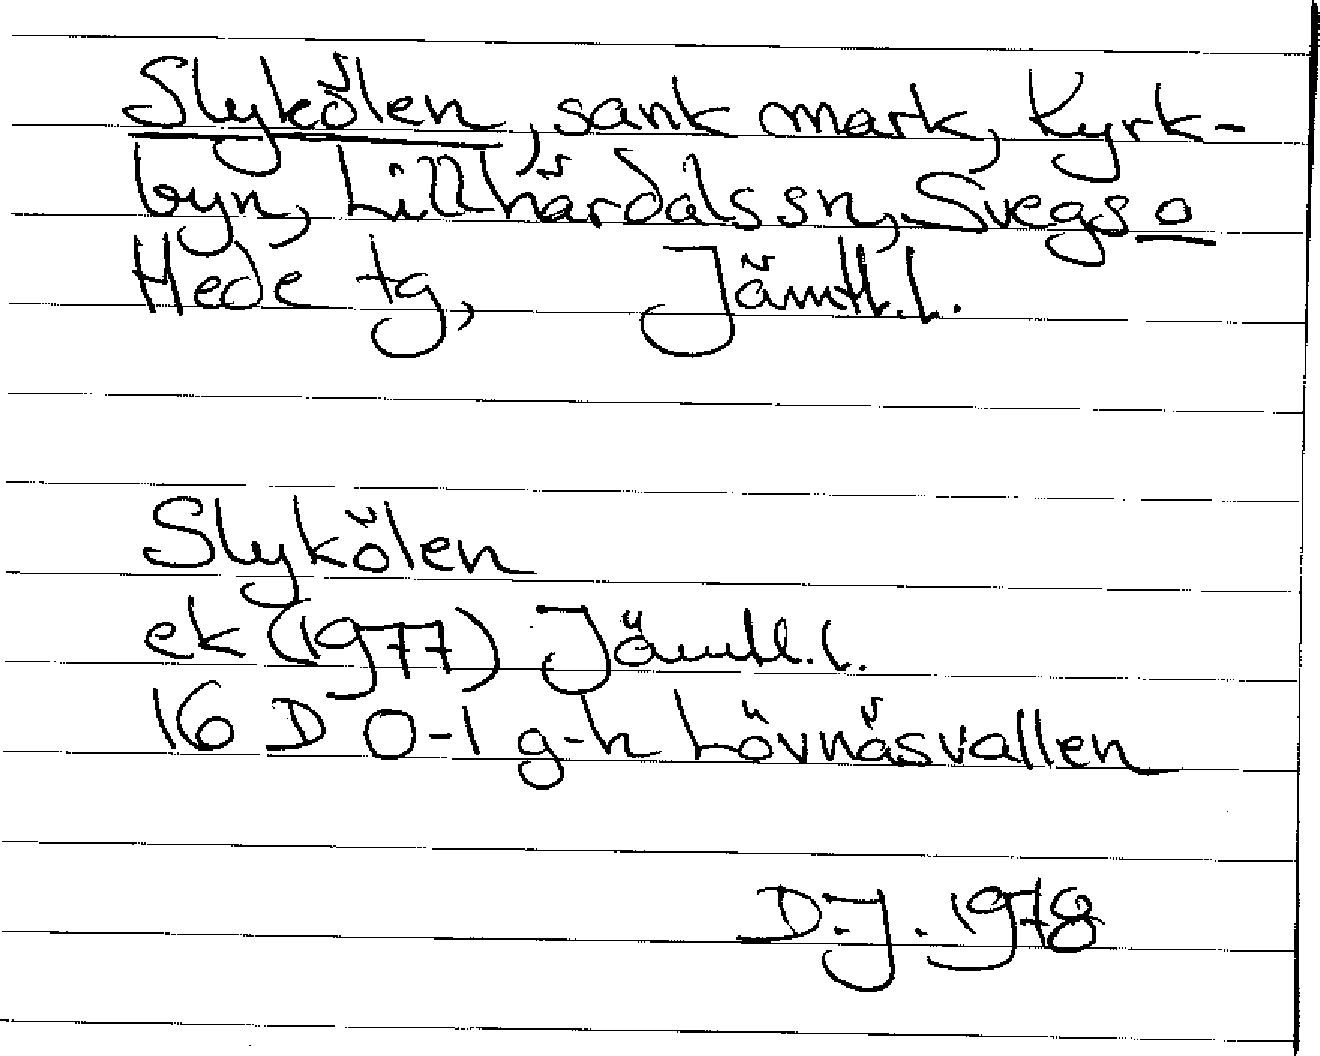 Slykölen, sank mark, Kyrk-
byn, Lillhärdals sn, Svegs o
Hede tg, Jämtl.l.
Slykölen
ek (1977) Jämtl.l.
16 D 0-1 g-h Lövnäsvallen
D.J. 1978